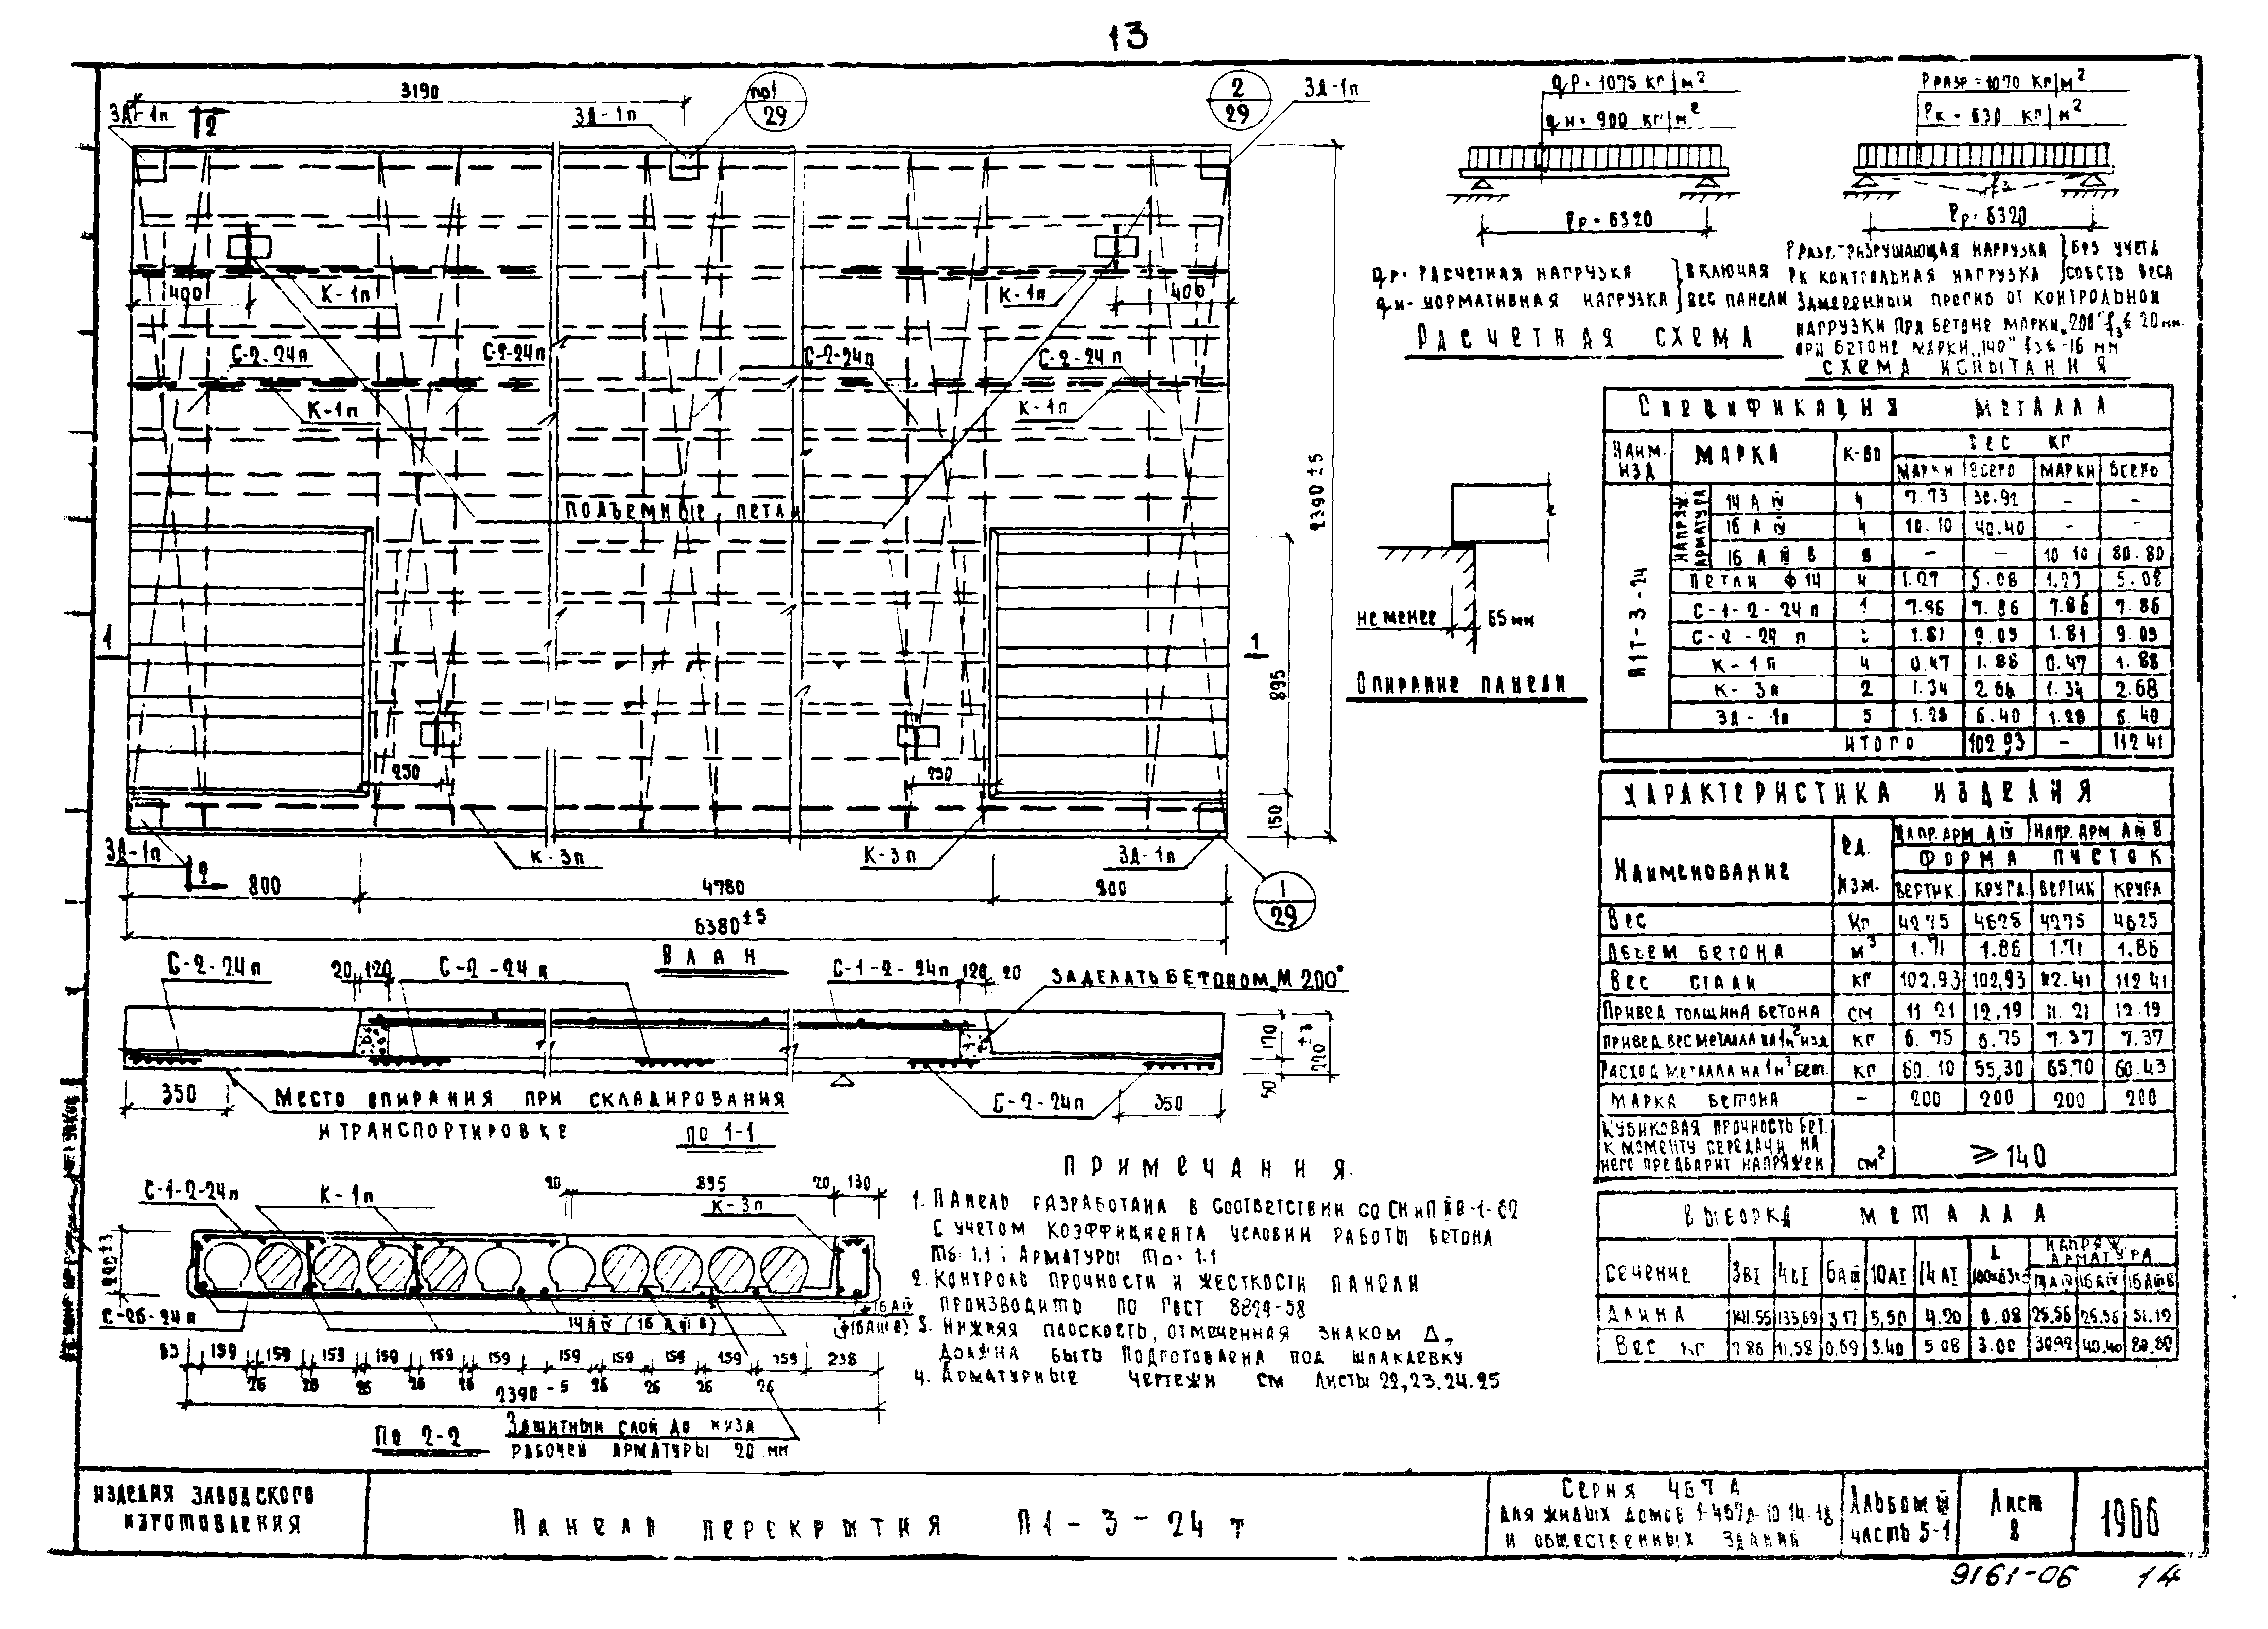 13
3190
ПО1
29
2
29
ЗД-1п
ЗД-1п
2
ЗД-1п
400
К-1п
К-1п
400
С-2-24п
С-2-24п
С-2-24п
С-2-24п
К-1п
К-1п
ПОДЪЕМНЫЕ ПЕТЛИ
2390±5
1
1
895
250
250
150
ЗД-1п
К-3п
К-3п
ЗД-1п
2
800
4780
800
1
29
6380±5
ПЛАН
С-2-24п
20
120
С-2-24п
С-1-2-24п
120
20
ЗАДЕЛАТЬ БЕТОНОМ „М 200"
170
220±3
50
350
МЕСТО ОПИРАНИЯ ПРИ СКЛАДИРОВАНИИ
И ТРАНСПОРТИРОВКЕ
С-2-24п
350
ПО 1-1
С-1-2-24п
К-1п
20
895
20
130
К-3п
14АIV (16АIIIВ)
16АIV
(16АIIIВ)
159 159 159 159 159 159 159 159 159 159 159 238
26 26 26 26 26 26 26 26 26
2390-5
ПО 2-2
ЗАЩИТНЫЙ СЛОЙ ДО НИЗА
РАБОЧЕЙ АРМАТУРЫ 20 мм
qр=1075 кг/м²
qн=900 кг/м²
ℓр=6320
qр- РАСЧЕТНАЯ НАГРУЗКА
qн- НОРМАТИВНАЯ НАГРУЗКА
ВКЛЮЧАЯ
ВЕС ПАНЕЛИ
РАСЧЕТНАЯ СХЕМА
Рразр=1070 кг/м²
Рк=630 кг/м²
ℓр=6320
Рразр-РАЗРУШАЮЩАЯ НАГРУЗКА
Рк КОНТРОЛЬНАЯ НАГРУЗКА
БЕЗ УЧЕТА
СОБСТВ ВЕСА
ЗАМЕРЕННЫЙ ПРОГИБ ОТ КОНТРОЛЬНОЙ
НАГРУЗКИ ПРИ БЕТОНЕ МАРКИ „200" f₃≤20мм.
ПРИ БЕТОНЕ МАРКИ „140" f₃≤-16 мм
СХЕМА ИСПЫТАНИЯ
НЕ МЕНЕЕ
65 мм
ОПИРАНИЕ ПАНЕЛИ
СПЕЦИФИКАЦИЯ МЕТАЛЛА
НАИМ. ИЗД МАРКА К-ВО ВЕС КГ
МАРКИ ВСЕГО МАРКИ ВСЕГО
П1Т-3-24
НАПРЯЖ. АРМАТУРА
14 АIV 4 7.73 30.92 – –
16 АIV 4 10.10 40.40 – –
16 АIIIВ 8 – – 10 10 80.80
ПЕТЛИ Ф14 4 1.27 5.08 1.27 5.08
С-1-2-24п 1 7.86 7.86 7.86 7.86
С-2-24п 1.81 9.05 1.81 9.05
К-1п 4 0.47 1.88 0.47 1.88
К-3п 2 1.34 2.68 1.34 2.68
ЗД-1п 5 1.28 6.40 1.28 6.40
ИТОГО 102 93 – 112 41
ХАРАКТЕРИСТИКА ИЗДЕЛИЯ
НАИМЕНОВАНИЕ ЕД. ИЗМ. НАПР.АРМ АIV НАПР.АРМ АIIIВ
ФОРМА ПУСТОК
ВЕРТИК. КРУГЛ. ВЕРТИК КРУГЛ
ВЕС Кг 4275 4625 4275 4625
ОБЪЕМ БЕТОНА м³ 1.71 1.86 1.71 1.86
ВЕС СТАЛИ КГ 102.93 102,93 112.41 112 41
ПРИВЕД ТОЛЩИНА БЕТОНА СМ 11 21 12.19 11.21 12.19
ПРИВЕД. ВЕС МЕТАЛЛА НА 1м² ИЗД КГ 6.75 6.75 7.37 7.37
РАСХОД МЕТАЛЛА НА 1м³ БЕТ. КГ 60.10 55,30 65,70 60.43
МАРКА БЕТОНА – 200 200 200 200
КУБИКОВАЯ ПРОЧНОСТЬ БЕТ.
К МОМЕНТУ ПЕРЕДАЧИ НА
НЕГО ПРЕДВАРИТ НАПРЯЖЕН см² ≥140
ВЫБОРКА МЕТАЛЛА
СЕЧЕНИЕ 3ВI 4ВI 6АIII 10АI 14АI НАПРЯЖ. АРМАТУРА
14АIV 16АIV 16АIIIВ
ДЛИНА 141.55 135,69 3.17 5,50 4.20 0.08 25,56 25,56 51.12
ВЕС кг 7.86 11.58 0,69 3.40 5 08 3.00 30.92 40,40 80,80
ПРИМЕЧАНИЯ.
1. ПАНЕЛЬ РАЗРАБОТАНА В СООТВЕТСТВИИ СО СНиП II В-1-62
С УЧЕТОМ КОЭФФИЦИЕНТА УСЛОВИЙ РАБОТЫ БЕТОНА
mб=1.1; АРМАТУРЫ ma=1.1
2. КОНТРОЛЬ ПРОЧНОСТИ И ЖЕСТКОСТИ ПАНЕЛИ
ПРОИЗВОДИТЬ ПО ГОСТ 8829-58
3. НИЖНЯЯ ПЛОСКОСТЬ, ОТМЕЧЕННАЯ ЗНАКОМ Δ,
ДОЛЖНА БЫТЬ ПОДГОТОВЛЕНА ПОД ШПАКЛЕВКУ
4. АРМАТУРНЫЕ ЧЕРТЕЖИ СМ ЛИСТЫ 22,23.24.25
ИЗДЕЛИЯ ЗАВОДСКОГО
ИЗГОТОВЛЕНИЯ
ПАНЕЛЬ ПЕРЕКРЫТИЯ П1-3-24т
СЕРИЯ 467А
ДЛЯ ЖИЛЫХ ДОМОВ 1-467А-10 14-18
И ОБЩЕСТВЕННЫХ ЗДАНИЙ
АЛЬБОМ III
ЧАСТЬ 5-1
ЛИСТ
8
1966
9161-06 14